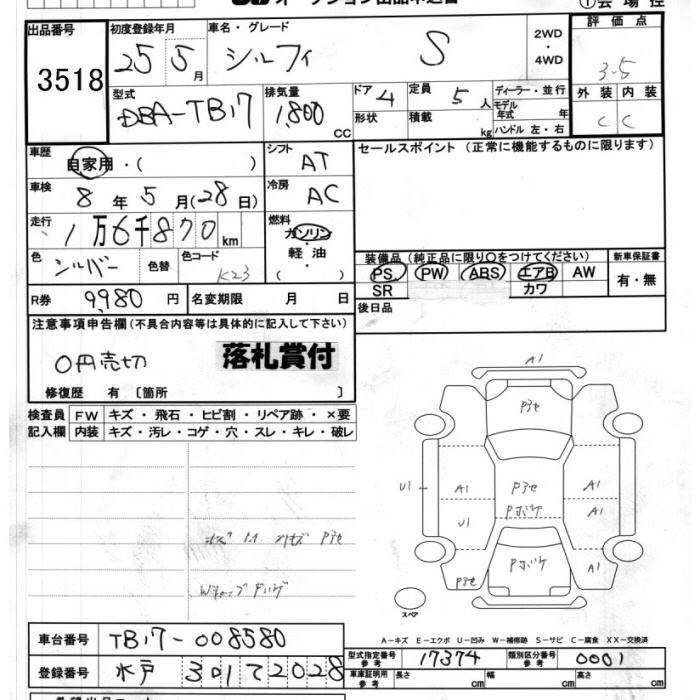 オークション出品申込書
①会場控
出品番号
3518
初度登録年月
25 5月
車名・グレード
シルフィ S
2WD・4WD
評価点
3.5
外装 内装
C C
型式
DBA-TB17
排気量
1,800 CC
ドア 4
形状
定員 5人
積載 kg
ディーラー・並行
モデル年式 年
ハンドル 左・右
車歴
自家用・( )
シフト
AT
セールスポイント (正常に機能するものに限ります)
車検
8年5月(28日)
冷房
AC
走行
1万6千870km
燃料
ガソリン・軽油・( )
色
シルバー
色替
色コード
K23
装備品 (純正品に限り○をつけてください)
PS PW ABS エアB AW
SR カワ
新車保証書
有・無
R券 9,980円
名変期限 月 日
後日品
注意事項申告欄 (不具合内容等は具体的に記入して下さい)
0円売切
落札賞付
修復歴 有〔箇所 〕
検査員記入欄
FW キズ・飛石・ヒビ割・リペア跡・×要
内装 キズ・汚レ・コゲ・穴・スレ・キレ・破レ
A1
Pアセ
U1
A1
U1
Pアセ
Pボケ
A1
A1
Pボケ
Pアセ
A1
スペア
A-キズ E-エクボ U-凹み W-補修跡 S-サビ C-腐食 XX-交換済
車台番号 TB17-008580
登録番号 水戸 301 て 2028
型式指定番号 参考 17374
類別区分番号 参考 0001
車庫証明用 参考 長さ cm 幅 cm 高さ cm